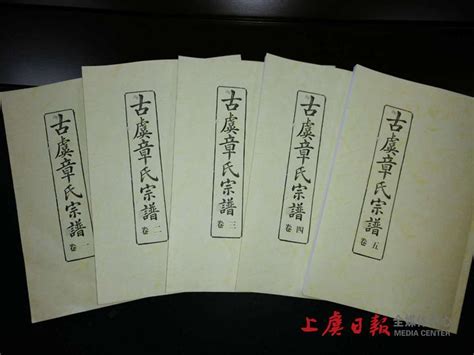 古虞章氏宗譜 卷一
古虞章氏宗譜 卷二
古虞章氏宗譜 卷三
古虞章氏宗譜 卷四
古虞章氏宗譜 卷五
上虞日報
全媒体中心
MEDIA CENTER